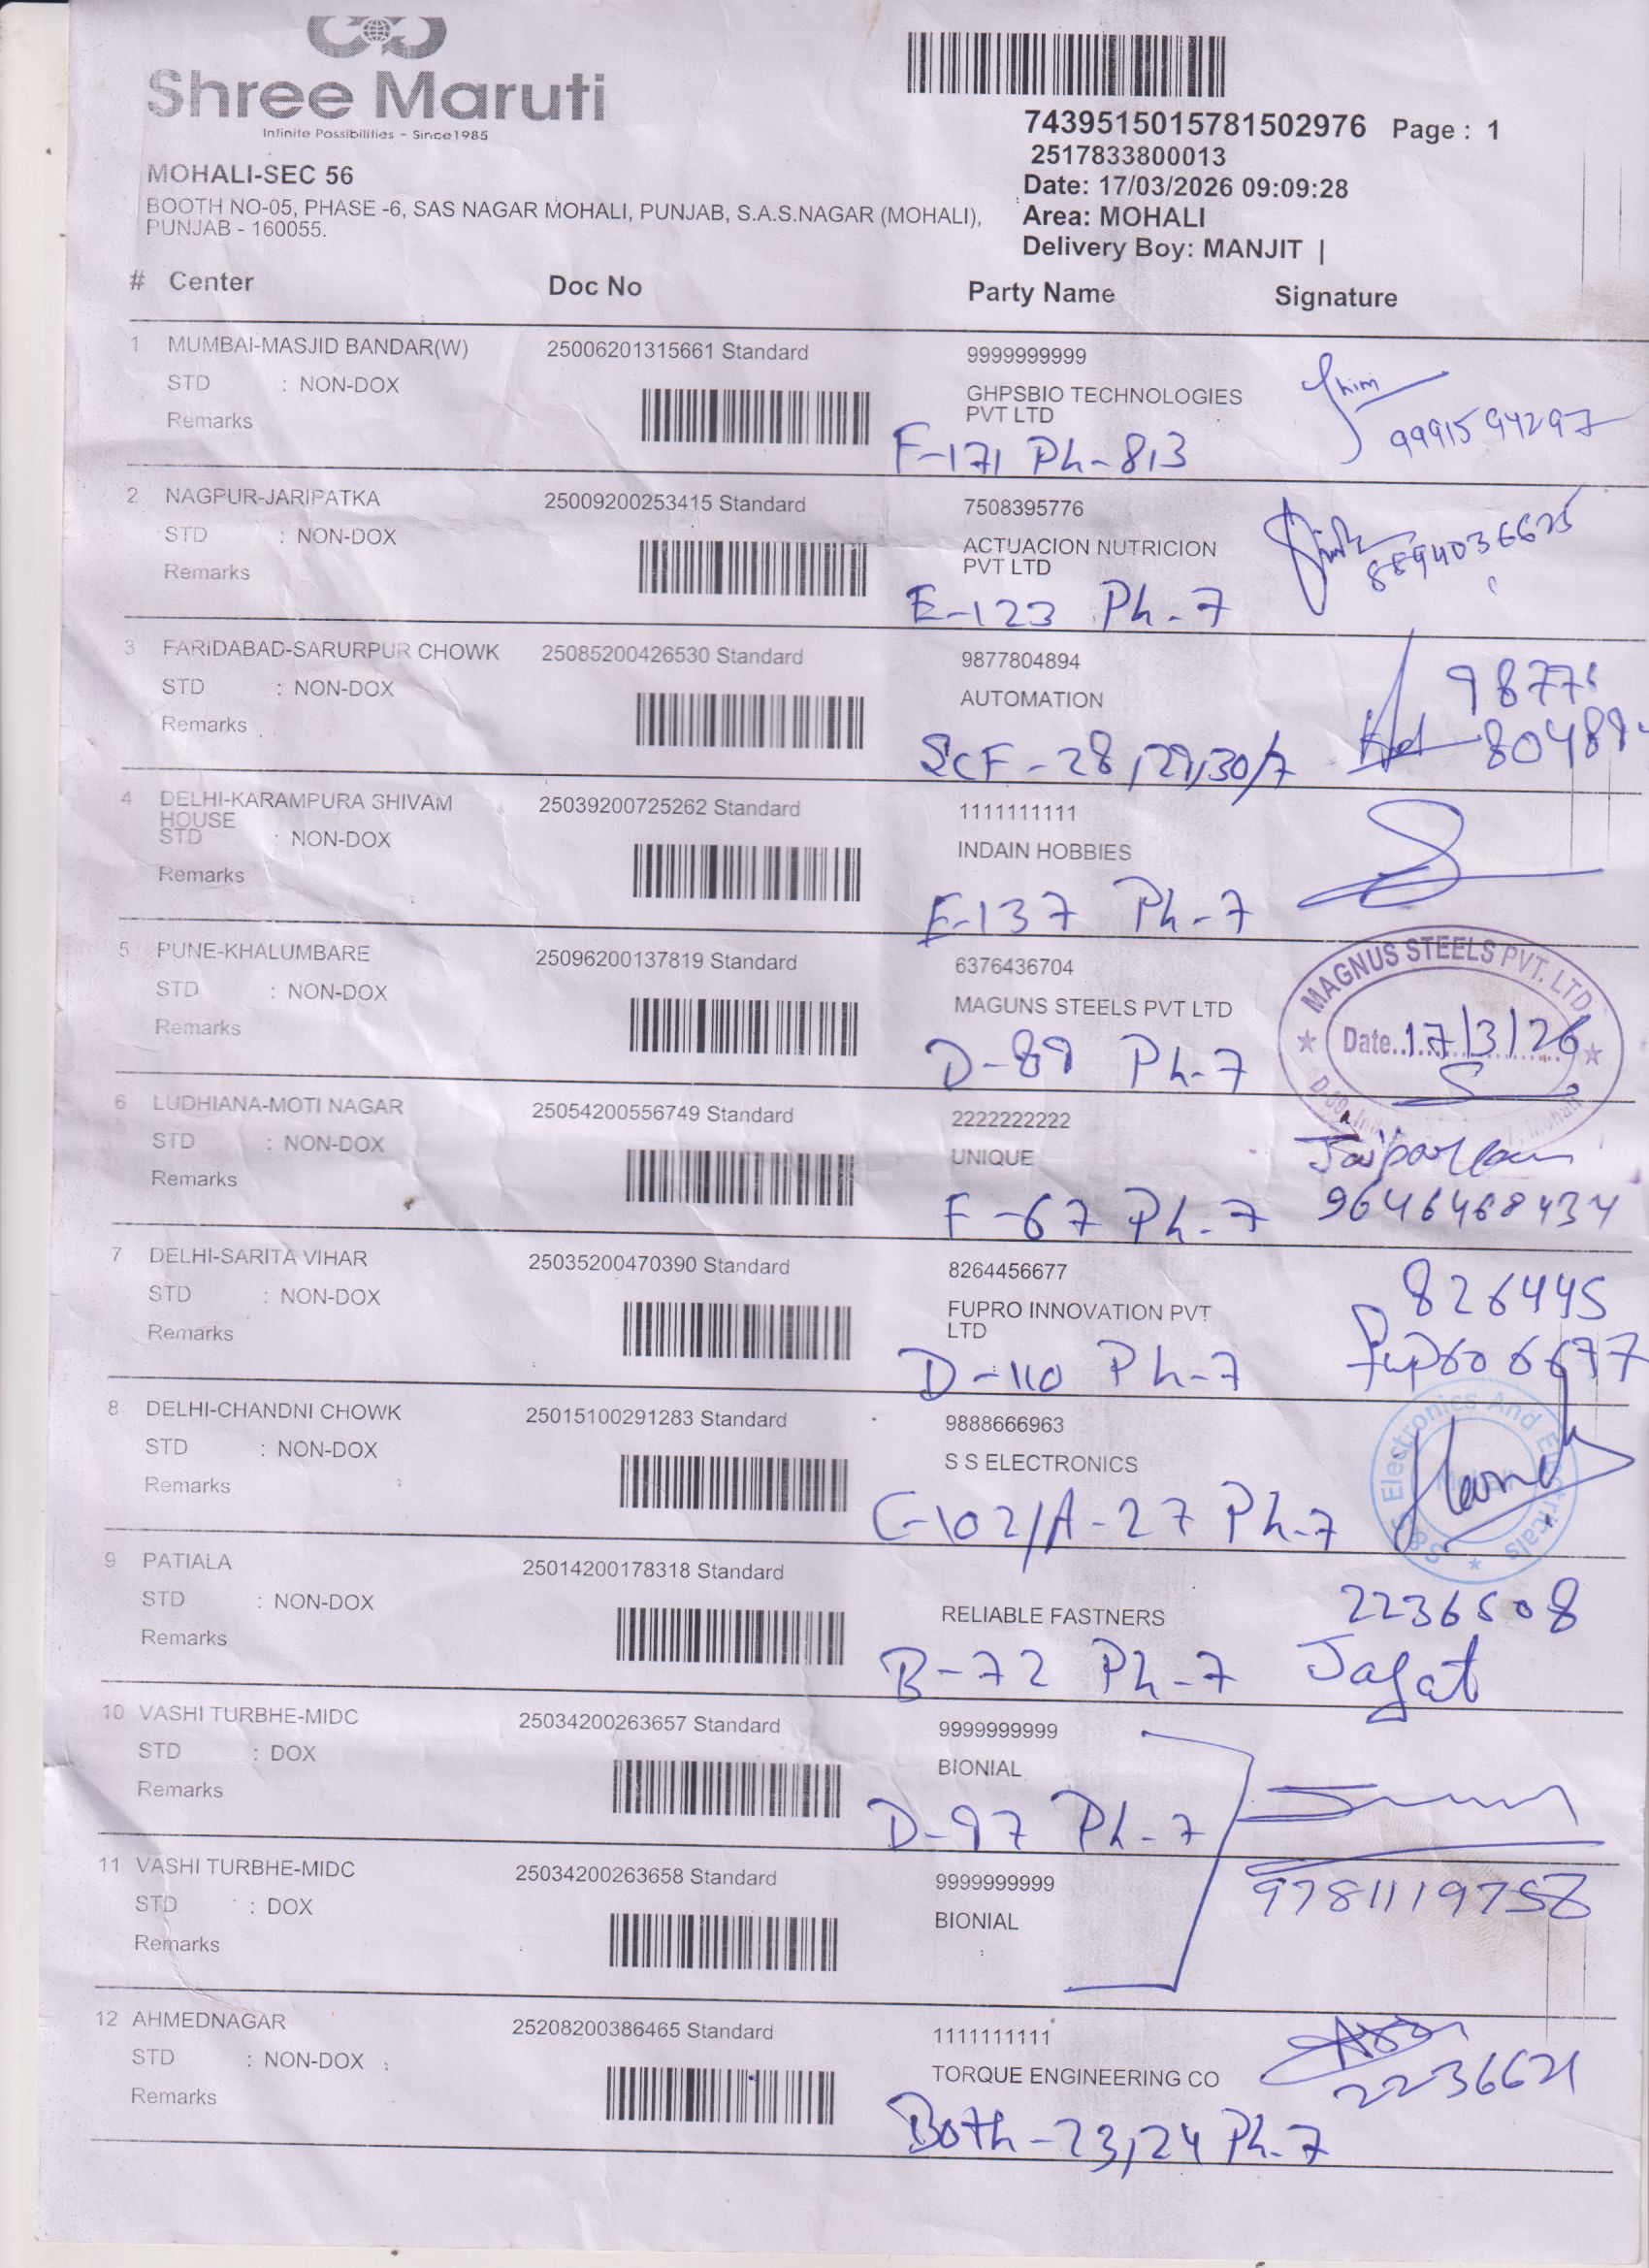 Shree Maruti
Infinite Possibilities - Since1985
7439515015781502976 Page : 1
2517833800013
MOHALI-SEC 56
Date: 17/03/2026 09:09:28
BOOTH NO-05, PHASE -6, SAS NAGAR MOHALI, PUNJAB, S.A.S.NAGAR (MOHALI),
PUNJAB - 160055.
Area: MOHALI
Delivery Boy: MANJIT |
# Center Doc No Party Name Signature
1 MUMBAI-MASJID BANDAR(W) 25006201315661 Standard 9999999999
STD : NON-DOX GHPSBIO TECHNOLOGIES
PVT LTD
Remarks
9991594297
F-171 Ph-8B
2 NAGPUR-JARIPATKA 25009200253415 Standard 7508395776
STD : NON-DOX ACTUACION NUTRICION
PVT LTD
Remarks
E-123 Ph-7
3 FARIDABAD-SARURPUR CHOWK 25085200426530 Standard 9877804894
STD : NON-DOX AUTOMATION
Remarks
9877
80489
SCF-28,29,30/7
4 DELHI-KARAMPURA SHIVAM
HOUSE
25039200725262 Standard 1111111111
STD : NON-DOX INDAIN HOBBIES
Remarks
E-137 Ph-7
5 PUNE-KHALUMBARE 25096200137819 Standard 6376436704
STD : NON-DOX MAGUNS STEELS PVT LTD
Remarks
D-89 Ph-7
MAGNUS STEELS PVT. LTD.
Date..17/3/26
6 LUDHIANA-MOTI NAGAR 25054200556749 Standard 2222222222
STD : NON-DOX UNIQUE
Remarks
F-67 Ph-7
9646468434
7 DELHI-SARITA VIHAR 25035200470390 Standard 8264456677
STD : NON-DOX FUPRO INNOVATION PVT
LTD
Remarks
826445
Fupro 6677
D-110 Ph-7
8 DELHI-CHANDNI CHOWK 25015100291283 Standard 9888666963
STD : NON-DOX S S ELECTRONICS
Remarks
C-102/A-27 Ph-7
Electronics And Electricals
9 PATIALA 25014200178318 Standard
STD : NON-DOX RELIABLE FASTNERS
Remarks
2236508
B-72 Ph-7 Jagat
10 VASHI TURBHE-MIDC 25034200263657 Standard 9999999999
STD : DOX BIONIAL
Remarks
D-97 Ph-7
11 VASHI TURBHE-MIDC 25034200263658 Standard 9999999999
STD : DOX BIONIAL
Remarks
9781119758
12 AHMEDNAGAR 25208200386465 Standard 1111111111
STD : NON-DOX TORQUE ENGINEERING CO
Remarks
2236621
Both-23,24 Ph-7